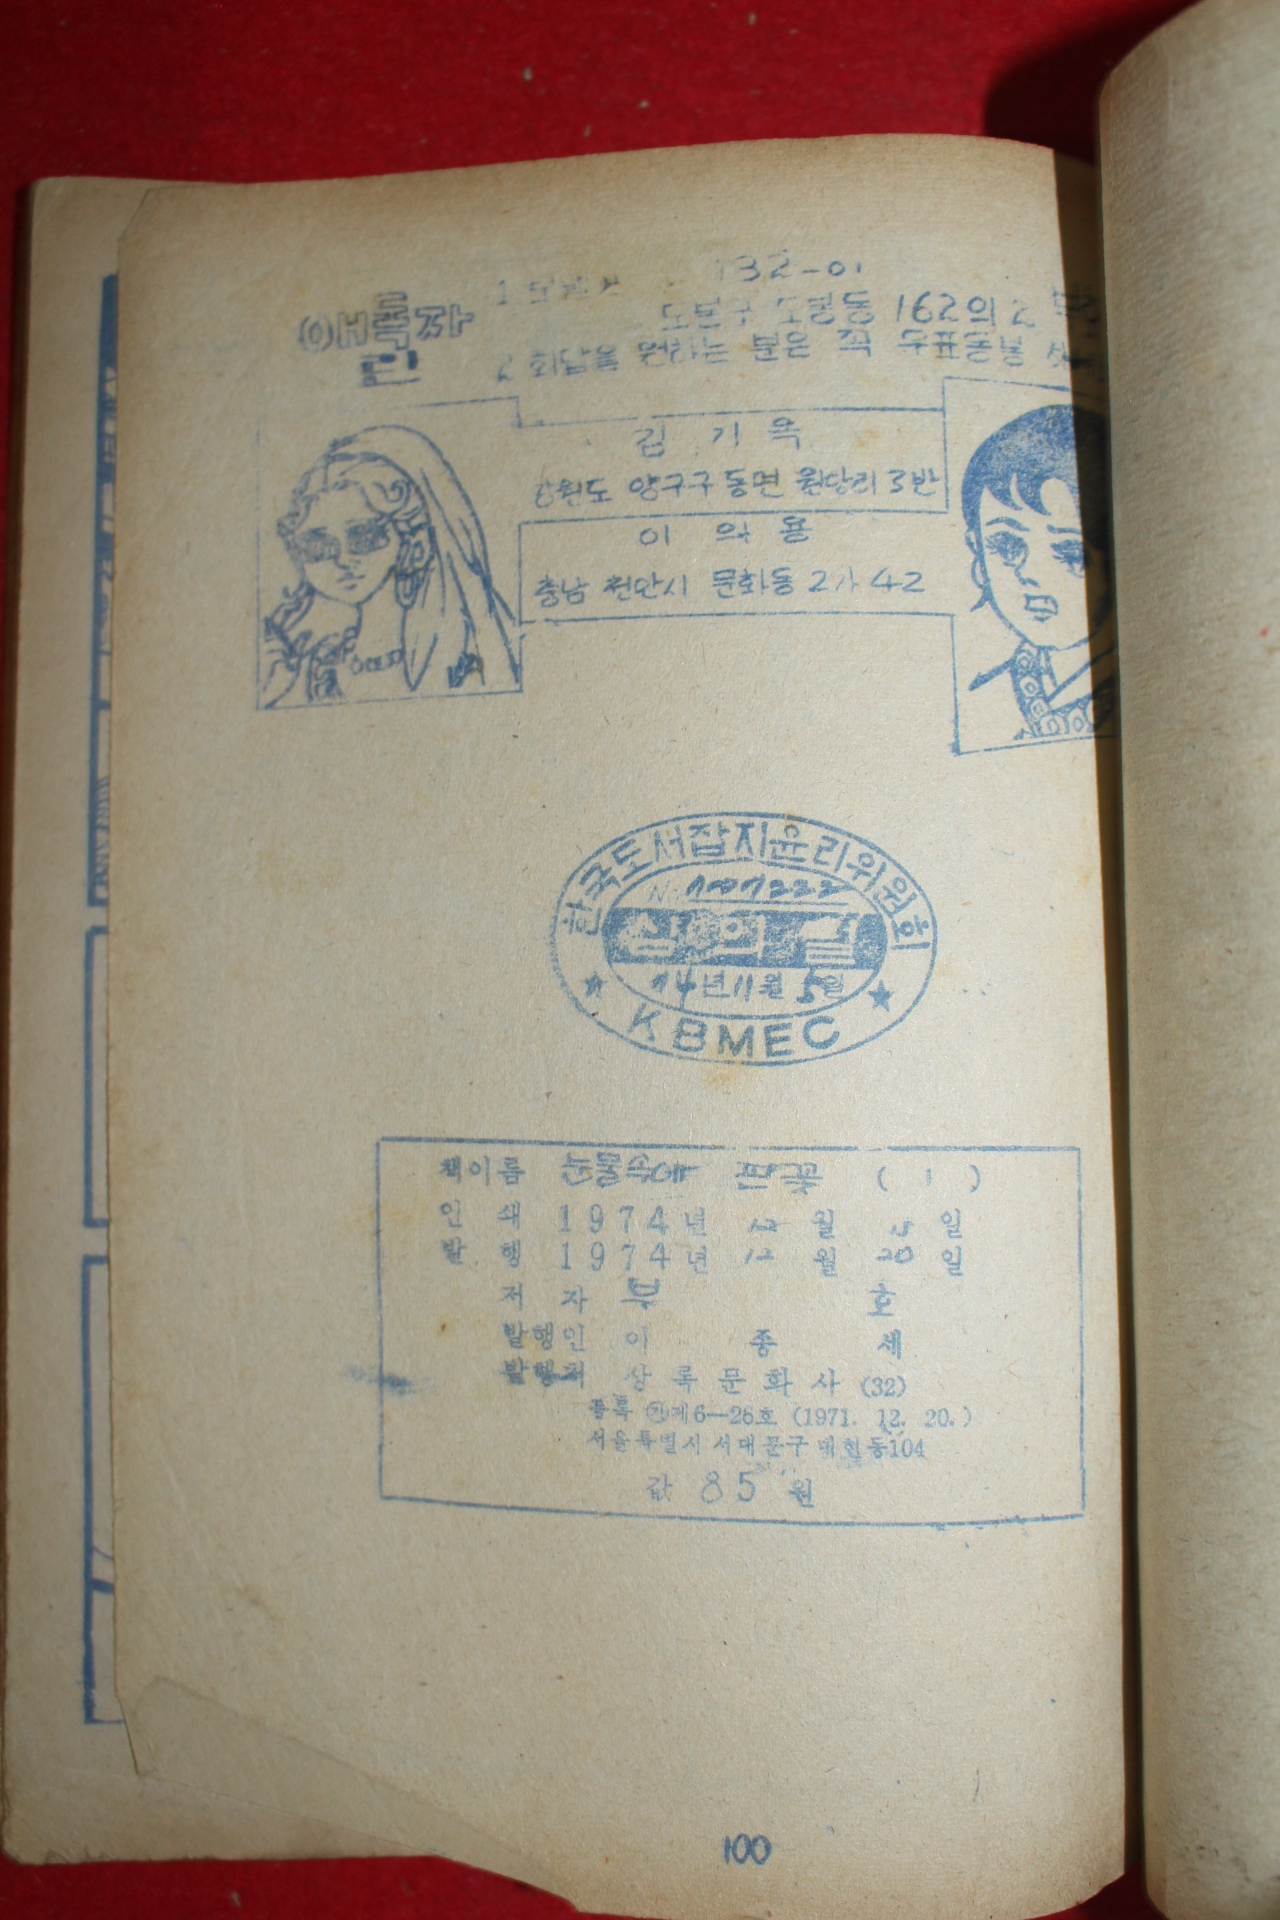 애독자란
132-01
도봉구 도봉동 162의 2
2 회답을 원하는 분은 꼭 우표동봉
김 기 옥
강원도 양구구 동면 원당리 3반
이 의 용
충남 천안시 문화동 2가 42
한국도서잡지윤리위원회
심의필
74년 11월 5일
KBMEC
책이름 눈물속에 핀꽃 ( 1 )
인 쇄 1974년 12 월 15 일
발 행 1974년 12 월 20 일
저 자 부 호
발행인 이 종 세
발행처 상록문화사 (32)
등록 ㉮제6—26호 (1971. 12. 20.)
서울특별시 서대문구 대현동104
값 85 원
100